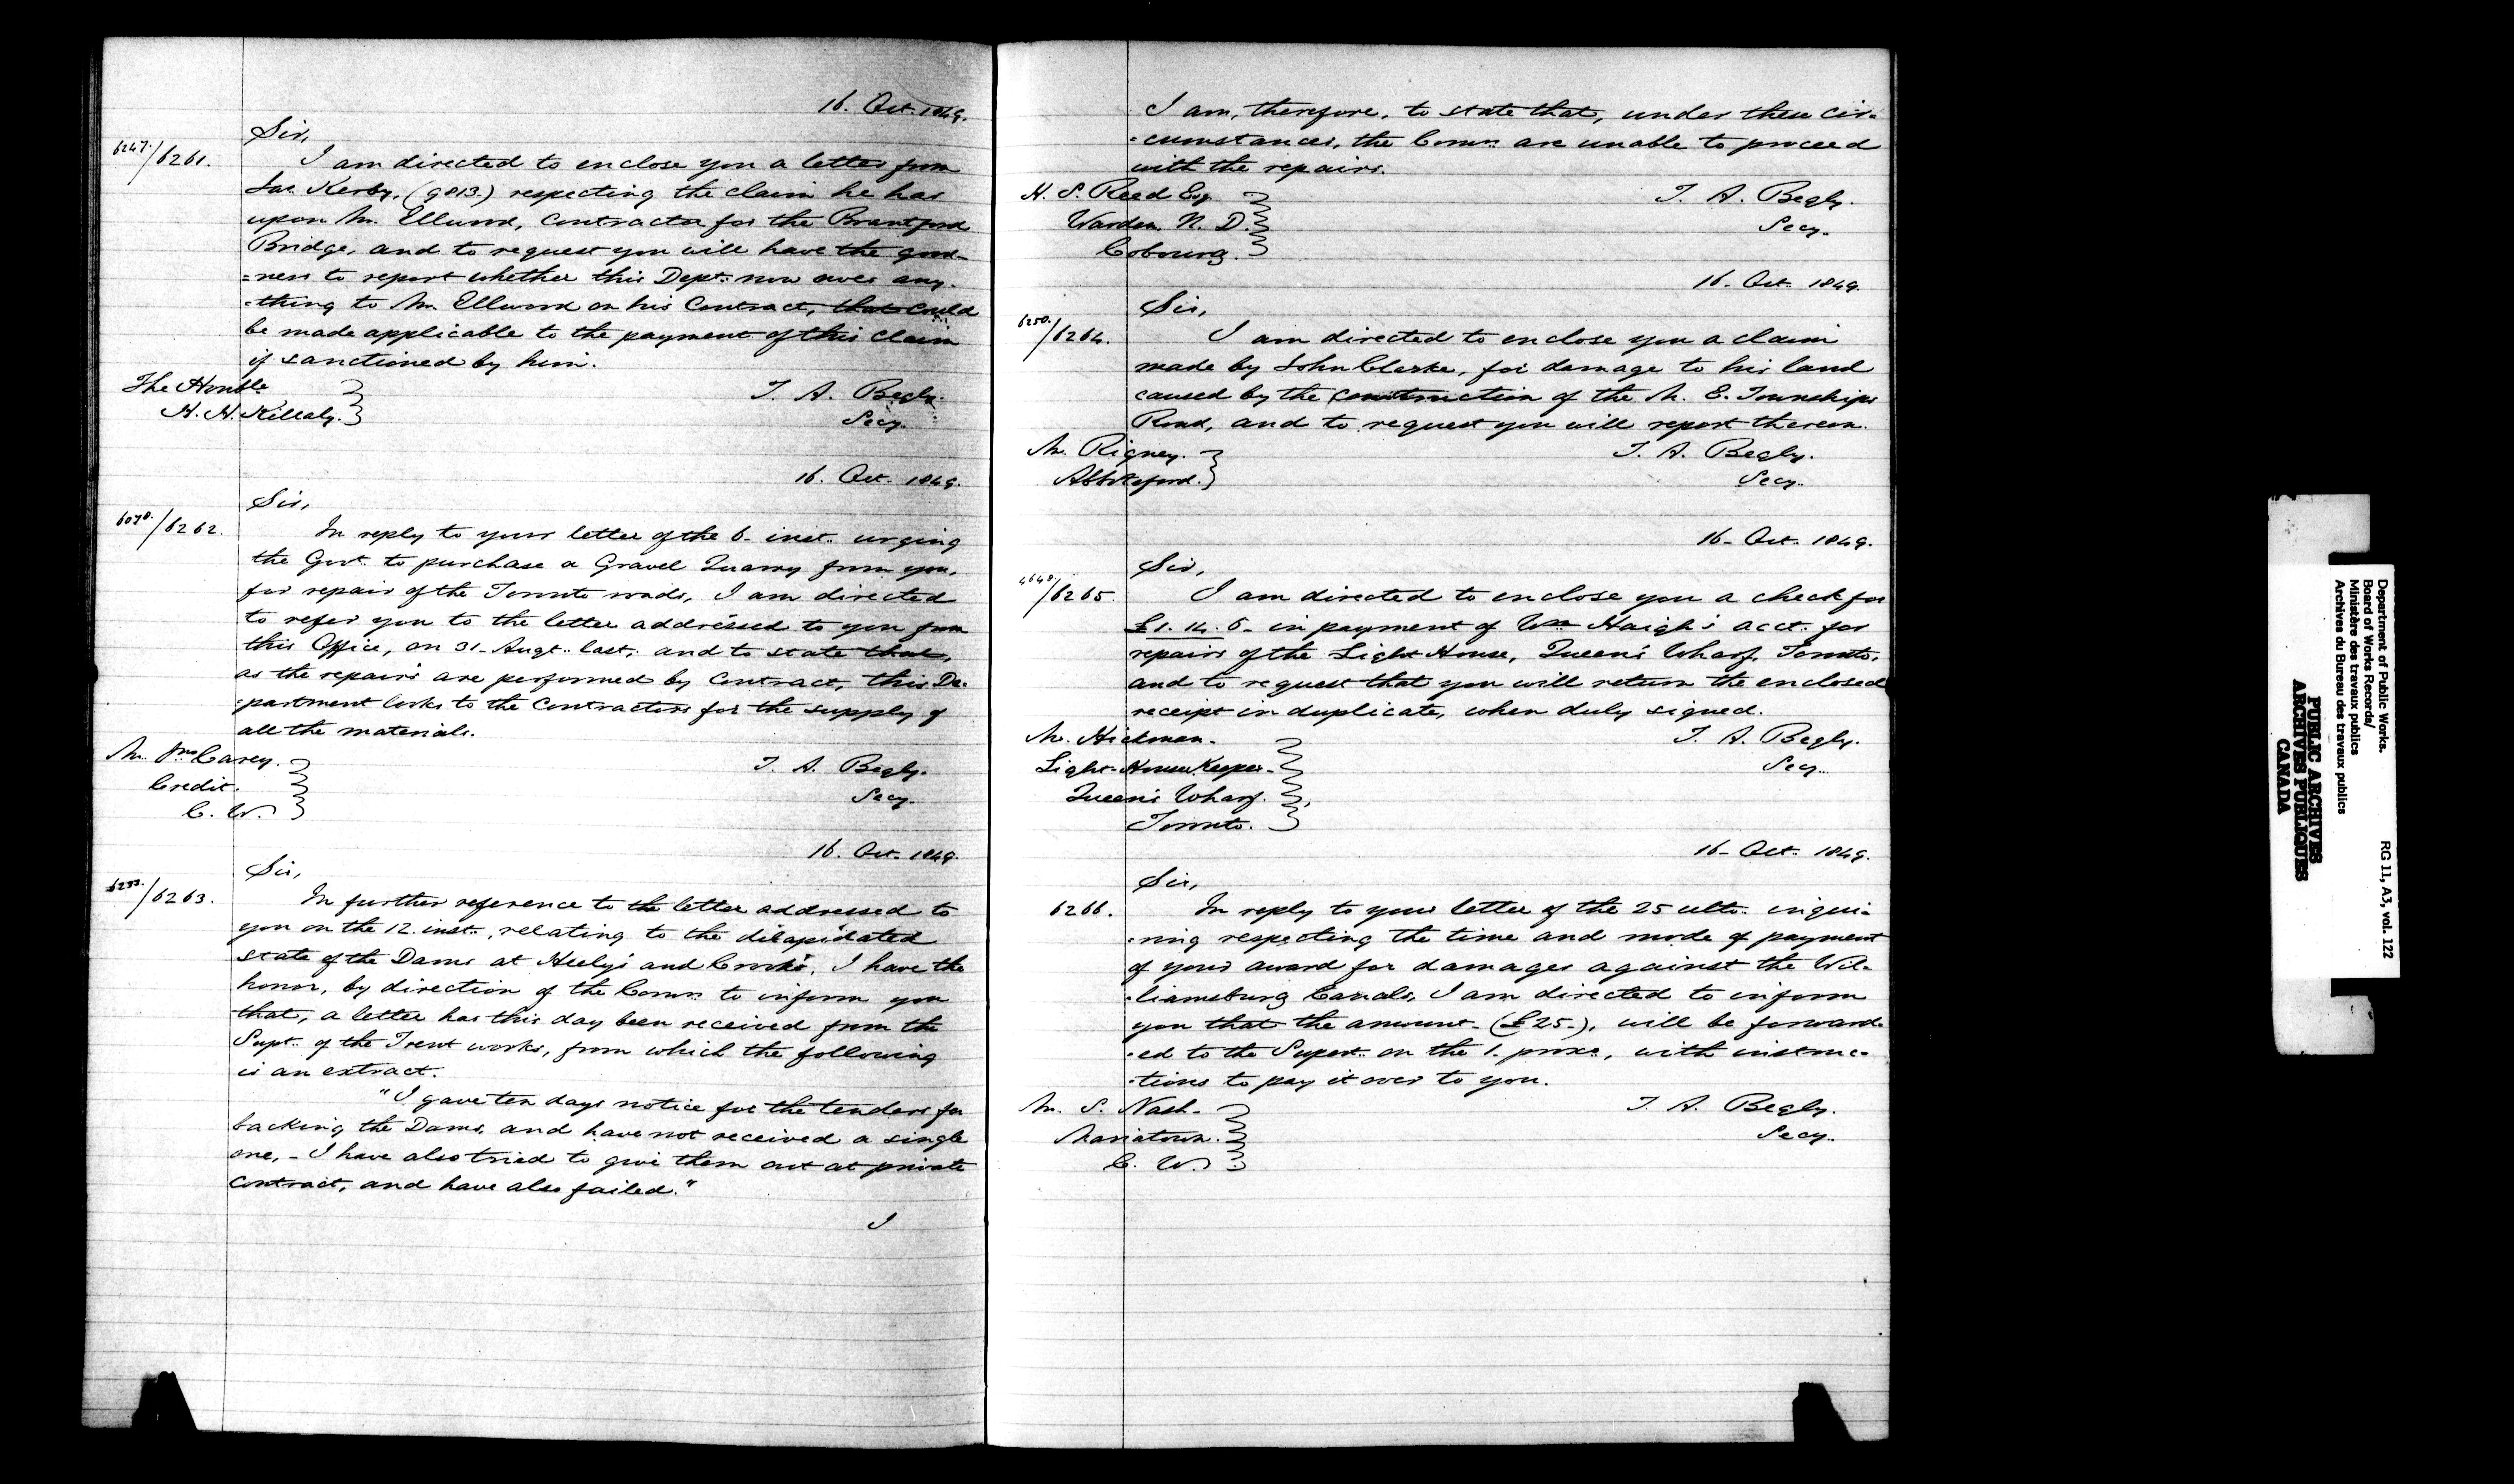 16. Oct. 1849.
Sir,
6247./6261.
I am directed to enclose you a letter from
Jas. Kerby, (9813.) respecting the claim he has
upon Mr. Ellwood, Contractor for the Brantford
Bridge, and to request you will have the good-
=ness to report whether this Dept. now owes any-
=thing to Mr. Ellwood on his Contract, that could
be made applicable to the payment of this claim
if sanctioned by him.
The Honble.
H. H. Killaly.
T. A. Begly.
Secy.
16. Oct. 1849.
Sir,
6078./6262.
In reply to your letter of the 6- inst. urging
the Govt. to purchase a Gravel Quarry from you,
for repair of the Toronto roads, I am directed
to refer you to the letter addressed to you from
this Office, on 31- Augt. last, and to state that,
as the repairs are performed by Contract, this De-
=partment looks to the Contractors for the supply of
all the materials.
Mr. Jno. Carey.
Credit.
C. W.
T. A. Begly.
Secy.
16. Oct. 1849.
Sir,
6233./6263.
In further reference to the letter addressed to
you on the 12. inst., relating to the dilapidated
state of the Dams at Heely's and Crooks', I have the
honor, by direction of the Comrs. to inform you
that, a letter has this day been received from the
Supt. of the Trent works, from which the following
is an extract.
"I gave ten days notice for the tenders for
backing the Dams, and have not received a single
one, - I have also tried to give them out at private
contract, and have also failed."
I
I am, therefore, to state that, under these cir-
=cumstances, the Comrs. are unable to proceed
with the repairs.
H. S. Reed Esq.
Warden. N. D.
Cobourg.
T. A. Begly.
Secy.
16- Oct. 1849.
Sir,
6250./6264.
I am directed to enclose you a claim
made by John Clarke, for damage to his land
caused by the construction of the M. E. Townships
Road, and to request you will report thereon.
Mr. Rigney.
Abbotsford.
T. A. Begly.
Secy.
16- Oct. 1849.
Sir,
4640/6265.
I am directed to enclose you a check for
£1. 14. 6- in payment of Wm. Haigh's acct. for
repairs of the Light House, Queen's Wharf, Toronto,
and to request that you will return the enclosed
receipt in duplicate, when duly signed.
Mr. Hickman.
Light-House Keeper.
Queen's Wharf.
Toronto.
T. A. Begly.
Secy.
16- Oct. 1849.
Sir,
6266.
In reply to your letter of the 25 ulto. inqui-
=ring respecting the time and mode of payment
of your award for damages against the Wil-
=liamsburg Canals, I am directed to inform
you that the amount- (£25-), will be forward-
=ed to the Supert. on the 1. proxo., with instruc-
=tions to pay it over to you.
Mr. S. Nash.
Mariatown.
C. W.
T. A. Begly.
Secy.
Department of Public Works.
Board of Works Records/
Ministère des travaux publics
Archives du Bureau des travaux publics
RG 11, A3, vol. 122
PUBLIC ARCHIVES
ARCHIVES PUBLIQUES
CANADA